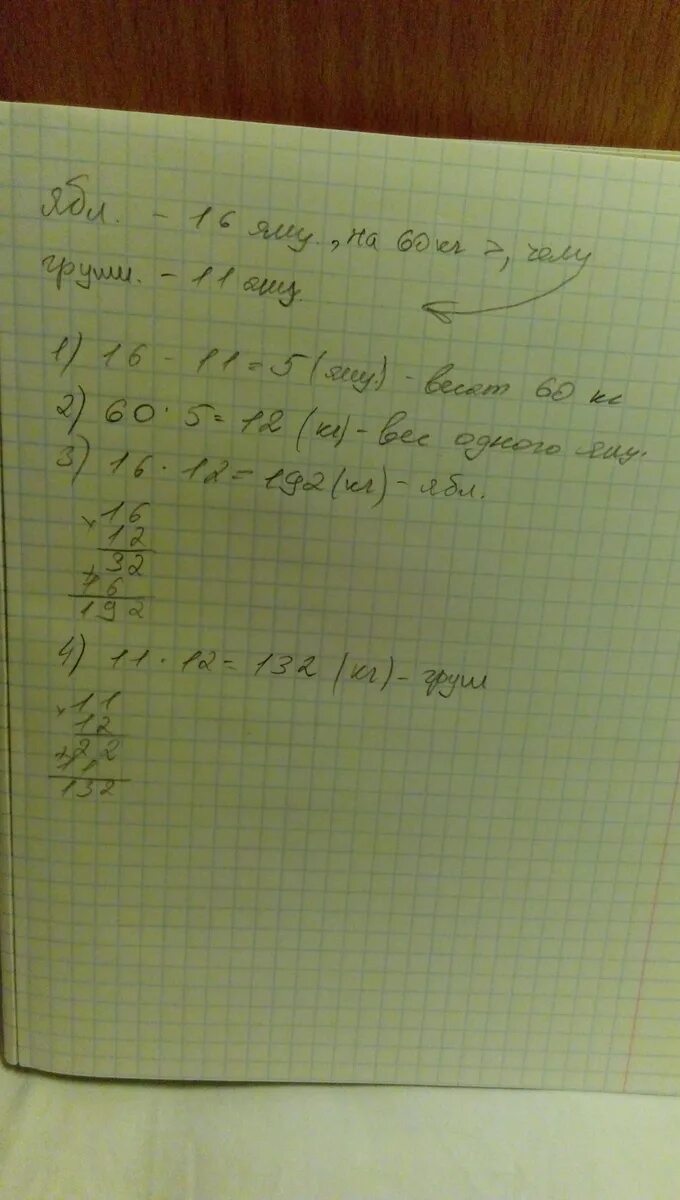 ябл. - 16 ящ., на 60 кг >, чем
груш. - 11 ящ.
1) 16 - 11 = 5 (ящ.) - весят 60 кг
2) 60 : 5 = 12 (кг) - вес одного ящ.
3) 16 · 12 = 192 (кг) - ябл.
×16
12
+32
16
192
4) 11 · 12 = 132 (кг) - груш
×11
12
+22
11
132